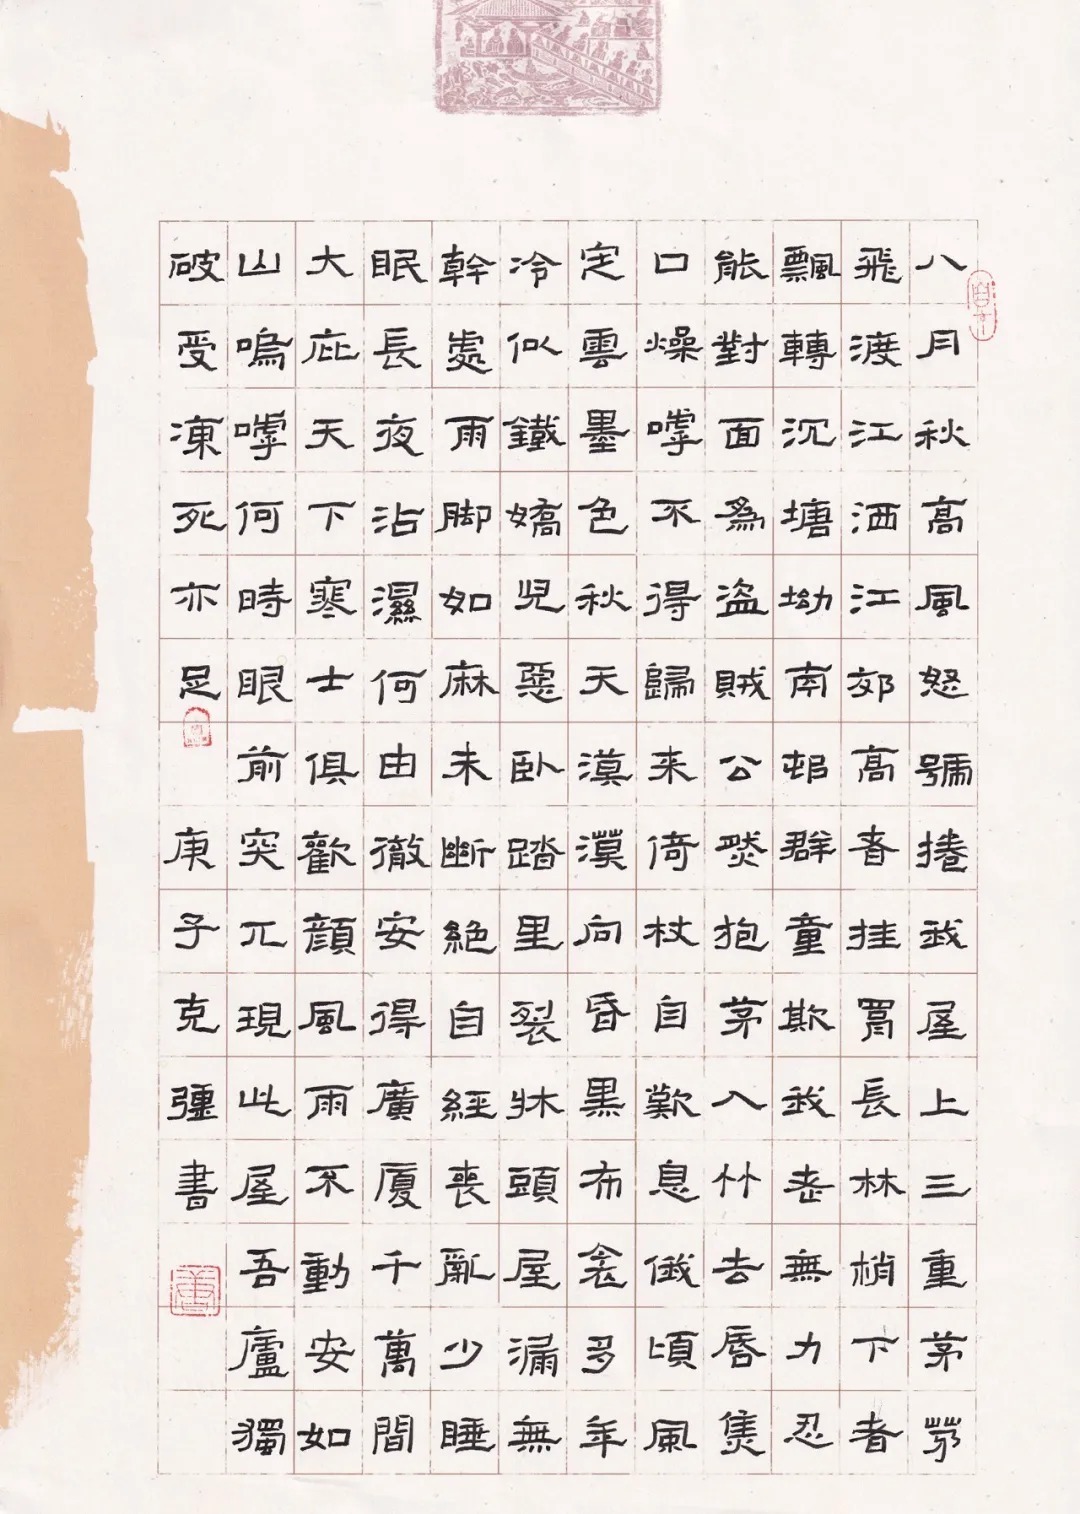 八月秋高風怒號捲我屋上三重茅茅
飛渡江洒江郊高者挂罥長林梢下者
飄轉沉塘坳南邨群童欺我老無力忍
能對面為盜賊公然抱茅入竹去唇焦
口燥嘑不得歸來倚杖自歎息俄頃風
定雲墨色秋天漠漠向昏黑布衾多年
冷似鐵嬌兒惡臥踏里裂牀頭屋漏無
幹處雨脚如麻未斷絕自經喪亂少睡
眠長夜沾濕何由徹安得廣廈千萬間
大庇天下寒士俱歡顏風雨不動安如
山嗚嘑何時眼前突兀現此屋吾廬獨
破受凍死亦足
庚子克彊書